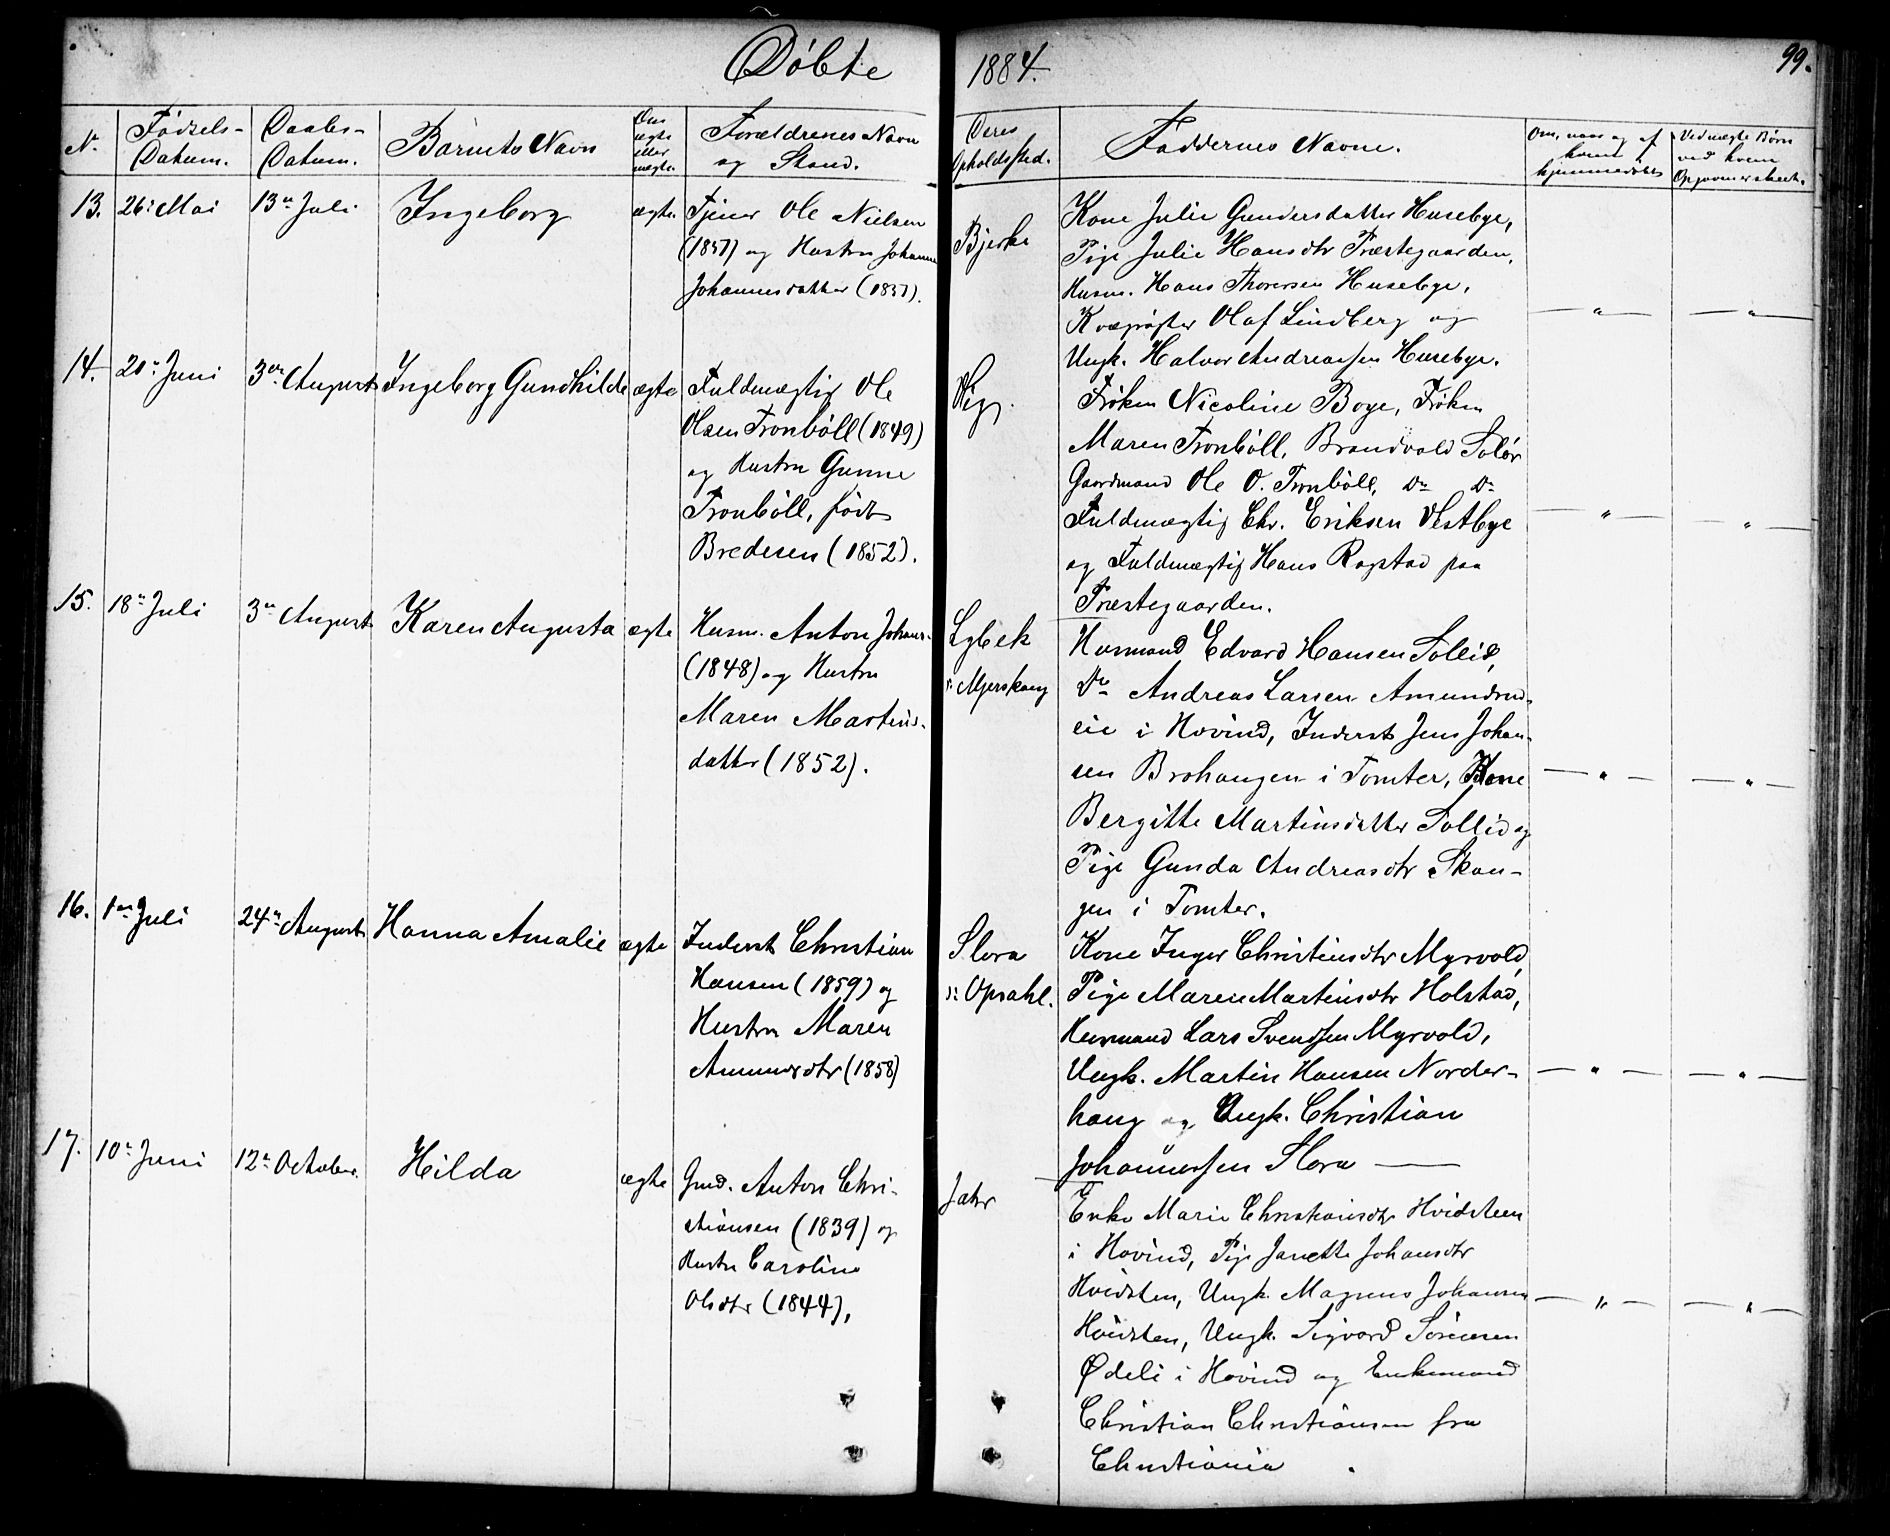 Döbte 1884. 99.
N. Fødsels-Datum. Daabs-Datum. Barnets Navn Om ægte eller uægte. Forældrenes Navn og Stand. Deres Opholdssted. Faddernes Navne. Om, naar og af hvem hjemmedøbt Ved uægte Børn ved hvem
13. 26: Mai 13de Juli Ingeborg ægte
Tjener Ole Nielsen
(1857) og Hustru Johanne
Johannesdatter (1857).
Bjerke
Kone Julie Gundersdatter Husebye,
Pige Julie Hansdtr Præstegaarden,
Husm. Hans Thoresen Husebye,
Olaf Lindberg og
Ungk. Halvor Andreassen Husebye.
— " — — " —
14. 20de Juni 3die August Ingeborg Gundhilde ægte
Fuldmægtig Ole
Olsen Tronböll (1849)
og Hustru Gunne
Tronböll, født
Bredesen (1852).
Vig.
Frøken Nicoline Boye, Frøken
Maren Tronböll, Brandvold Solör
Gaardmand Ole O. Tronböll, Do Do
Fuldmægtig Chr. Eriksen Vestbye
og Fuldmægtig Hans Rogstad paa
Præstegaarden.
— " — "
15. 18de Juli 3die August Karen Augusta ægte
Husm. Anton Johans.
(1848) og Hustru
Maren Martins-
datter (1852).
Lybek
Husmand Edvard Hansen Sollid,
Do Andreas Larsen Amundrud-
eie i Hovind, Inderst Jens Johan-
sen Brohaugen i Tomter, Kone
Bergitte Martinsdatter Sollid og
Pige Gunda Andreasdtr Skau-
gen i Tomter.
— " — — " —
16. 1ste Juli 24de August Hanna Amalie ægte
Inderst Christian
Hansen (1859) og
Hustru Maren
Amundsdtr (1858)
Slora
n: Opsahl.
Kone Inger Christinsdtr Myrvold,
Pige Maren Martinsdtr Holstad,
Husmand Lars Svendsen Myrvold,
Ungk. Martin Hansen Norder-
haug og Ungk. Christian
Johannessen Slora —
— " — — " —
17. 10de Juni 12te October. Hilda ægte
Gmd. Anton Chri-
stiansen (1839) og
Hustru Caroline
Olsdtr (1844).
Jahr
Enke Marie Christiansdtr Hvidsteen
i Hovind, Pige Janette Johansdtr
Hvidsten, Ungk. Magnus Johansen
Hvidsten, Ungk. Sigvard Sörensen
Ödeli i Hovind og Enkemand
Christian Christiansen fra
Christiania.
— " — — " —